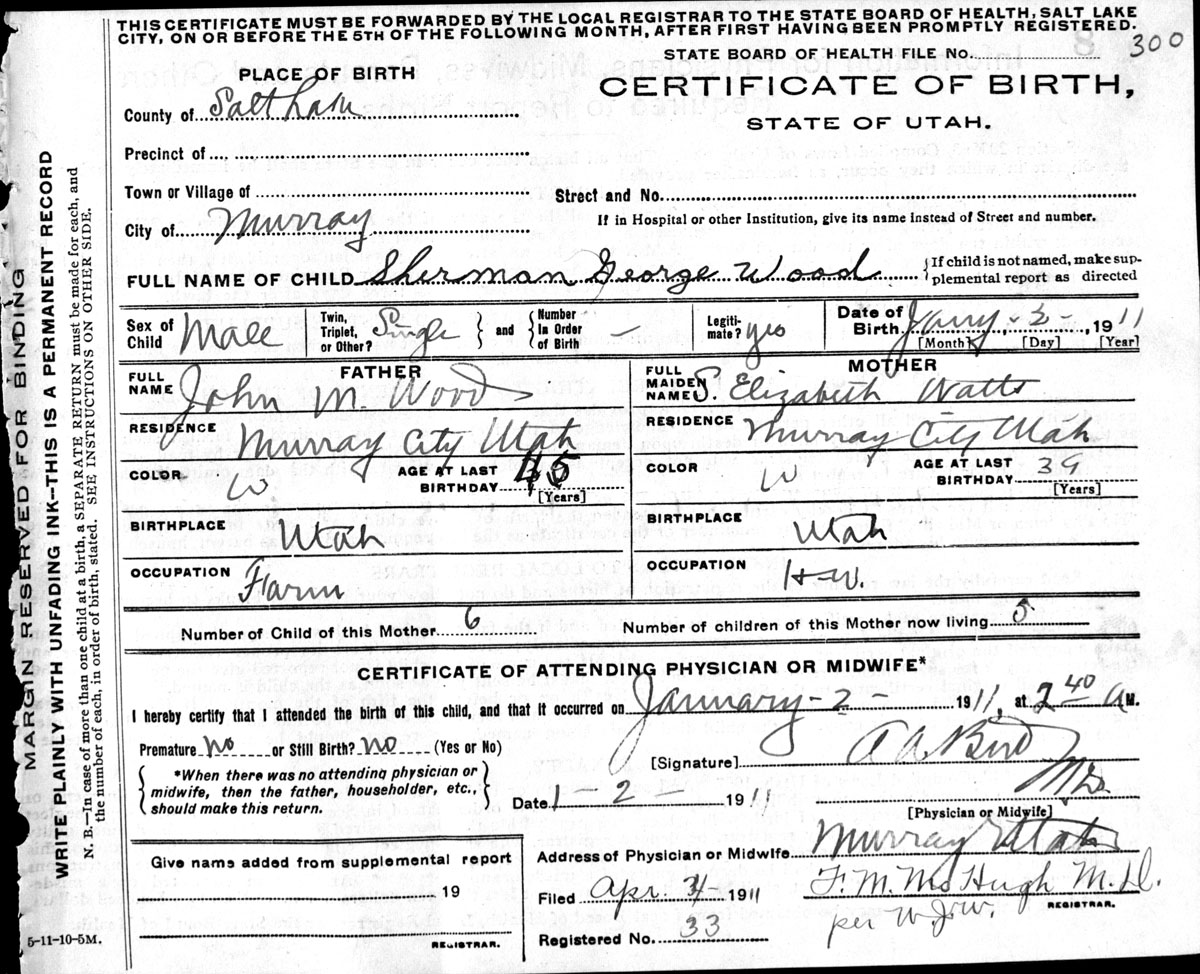 THIS CERTIFICATE MUST BE FORWARDED BY THE LOCAL REGISTRAR TO THE STATE BOARD OF HEALTH, SALT LAKE
CITY, ON OR BEFORE THE 5TH OF THE FOLLOWING MONTH, AFTER FIRST HAVING BEEN PROMPTLY REGISTERED.
STATE BOARD OF HEALTH FILE No. 300
PLACE OF BIRTH
CERTIFICATE OF BIRTH,
STATE OF UTAH.
County of Salt Lake
Precinct of
Town or Village of
Street and No.
City of Murray
If in Hospital or other Institution, give its name instead of Street and number.
FULL NAME OF CHILD Sherman George Wood {If child is not named, make sup-
plemental report as directed
Sex of Child Male
Twin, Triplet, or Other? Single } and { Number In Order of Birth —
Legiti-mate? yes
Date of Birth Jany - 2 -, 1911
[Month] [Day] [Year]
FATHER
FULL NAME John M. Wood
RESIDENCE Murray City Utah
COLOR W
AGE AT LAST BIRTHDAY 45
[Years]
BIRTHPLACE Utah
OCCUPATION Farm
MOTHER
FULL MAIDEN NAME S. Elizabeth Watts
RESIDENCE Murray City Utah
COLOR W
AGE AT LAST BIRTHDAY
[Years]
BIRTHPLACE Utah
OCCUPATION H-W.
Number of Child of this Mother 6
Number of children of this Mother now living
CERTIFICATE OF ATTENDING PHYSICIAN OR MIDWIFE*
I hereby certify that I attended the birth of this child, and that it occurred on January - 2 - 1911, at 2 40 A M.
Premature no or Still Birth? no (Yes or No)
{ *When there was no attending physician or
midwife, then the father, householder, etc.,
should make this return. }
[Signature] A A Bird
M.D.
Date 1 - 2 - 1911
[Physician or Midwife]
Address of Physician or Midwife Murray Utah
Give name added from supplemental report
19
REGISTRAR.
Filed Apr. 1911
F. M. McHugh M.D.
REGISTRAR.
per W.J.W.
Registered No. 33
5-11-10-5M.
MARGIN RESERVED FOR BINDING
WRITE PLAINLY WITH UNFADING INK--THIS IS A PERMANENT RECORD
N. B.—In case of more than one child at a birth, a SEPARATE RETURN must be made for each, and
the number of each, in order of birth, stated. SEE INSTRUCTIONS ON OTHER SIDE.